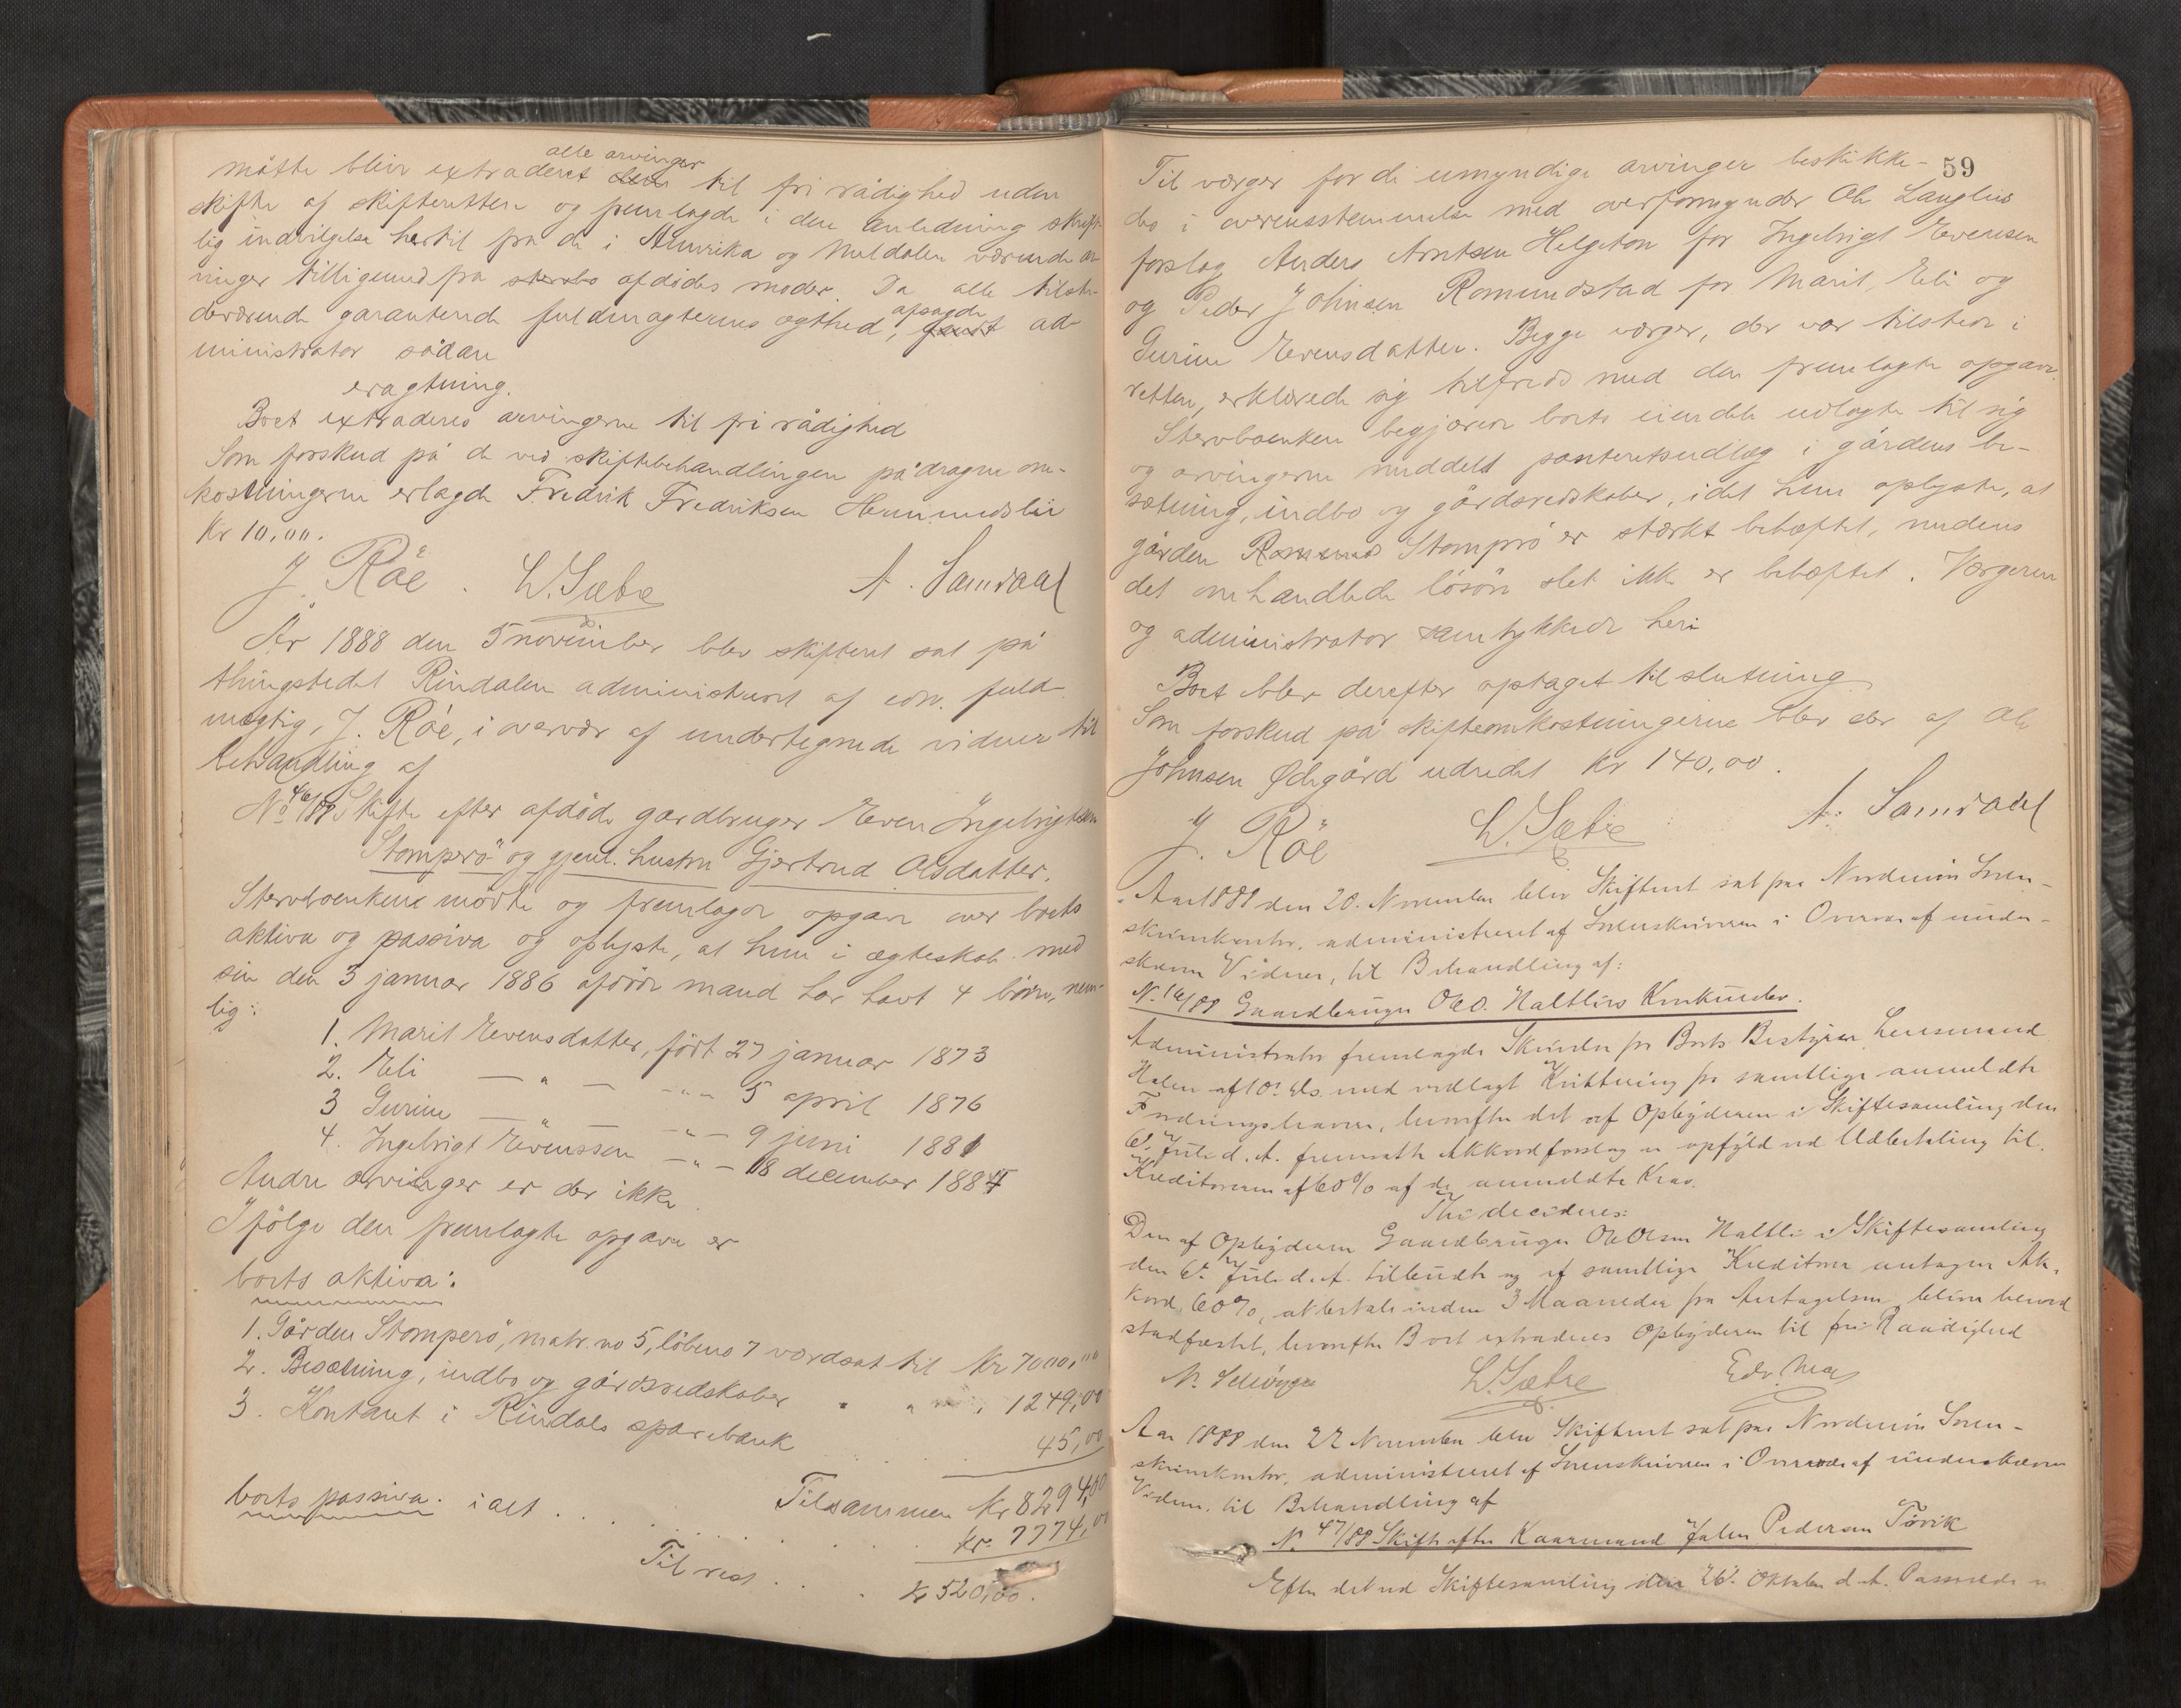 måtte blive extraderet alle arvinger til fri rådighed uden
skifte af skifteretten og fremlagde i den anledning skrift-
lig indvilgelse hertil fra de i Amerika og Meldalen værende ar-
vinger tilligemed fra sterbo afdødes moder. Da alle tilste-
deværende garanterede fuldmagternes ægthed, afsagde ad-
ministrator sådan
eragtning.
Boet extraderes arvingerne til fri rådighed
Som forskud på de ved skiftebehandlingen pådragne om-
kostningerne erlagde Fredrik Fredriksen Hemmedslie
Kr 10,00.
J. Röe. L. Sæbø A. Samdaal
År 1888 den 5 november blev skifteret sat på
thingstedet Rindalen administreret af edsv. fuld-
mægtig, J. Röe, i overvær af undertegnede vidner til
behandling af
No 46/88 Skifte efter afdøde gardbruger Even Ingebrigtsen
Stomperö og gjenl. hustru Gjertrud Olsdatter.
Stervboenken mødte og fremlagde opgave over boets
aktiva og passiva og oplyste, at hun i ægteskab med
sin den 3 januar 1886 afdøde mand har havt 4 börn, nem-
lig:
1. Marit Evensdatter, født 27 januar 1873
2. Eli — " — — " — 5 april 1876
3 Gurine — " — — " — 9 juni 1881
4. Ingebrigt Evenssen — " — 18 december 1884
Andre arvinger er der ikke
Ifölge den fremlagte opgave er
boets aktiva:
1. Gården Stomperö, matr. no 5, löbeno 7 værdsat til Kr 7000,00
2. Besætning, indbo og gårdsredskaber " " 1249,00
3. Kontant i Rindals sparebank 45,00
Tilsammen Kr 8294,00
boets passiva i alt . . . Kr. 7774,00
Til rest . . . Kr 520,00.
59
Til værger for de umyndige arvinger beskikke-
des i overensstemmelse med overformynder Ole Langlies
forslag Anders Arntsen Helgeton for Ingebrigt Evensen
og Peder Johnsen Romundstad for Marit, Eli og
Gurine Evensdatter. Begge værger, der var tilstede i
retten, erklærede sig tilfreds med den fremlagte opgave.
Stervboenken begjærede boets eiendele udlagte til sig
og arvingerne meddelt panteretsudlæg i gårdens be-
sætning, indbo og gårdsredskaber, idet hun oplyste, at
gården Stomprö er stærkt behæftet, medens
det omhandlede lösöre slet ikke er behæftet. Værgerne
og administrator samtykkede heri
Boet blev derefter optaget til slutning
Som forskud på skifteomkostningerne blev der af Ole
Johnsen Ødegård udredet Kr 140,00.
J. Röe L. Sæbø A. Samdaal
Aar 1888 den 20. November blev Skifteret sat paa Nordmøre Soren-
skriverkontor, administreret af Sorenskriveren i Overvær af under-
skrevne Vidner, til Behandling af:
N. 16/88 Gaardbruger Ole O. Haltlies Konkursbo.
Administrator fremlagde Skrivelse fra Boets Bestyrer Lensmand
Holen af 10. ds. med vedlagt Kvittering fra samtlige anmeldte
Fordringshavere, hvorefter det af Opbyderen i Skiftesamling den
6. Juli d. A. fremsatte Akkordforslag er opfyldt ved Udbetaling til
Kreditorerne af 60% af de anmeldte Krav.
Thi decideres:
Den af Opbyderen Gaardbruger Ole Olsen Haltli i Skiftesamling
den 6. Juli d. A. tilbudte og af samtlige Kreditorer antagne Ak-
kord, 60%, at betale inden 3 Maaneder fra Antagelsen, bliver herved
stadfæstet, hvorefter Boet extraderes Opbyderen til fri Raadighed
L. Sæbø
Aar 1888 den 22 November blev Skifteret sat paa Nordmøre Soren-
skriverkontor, administreret af Sorenskriveren i Overvær af underskrevne
Vidner, til Behandling af
N. 47/88 Skifte efter Kaarmand John Pedersen Törvik
Efter det ved Skiftesamling den 26. Oktober d. A. Passerede